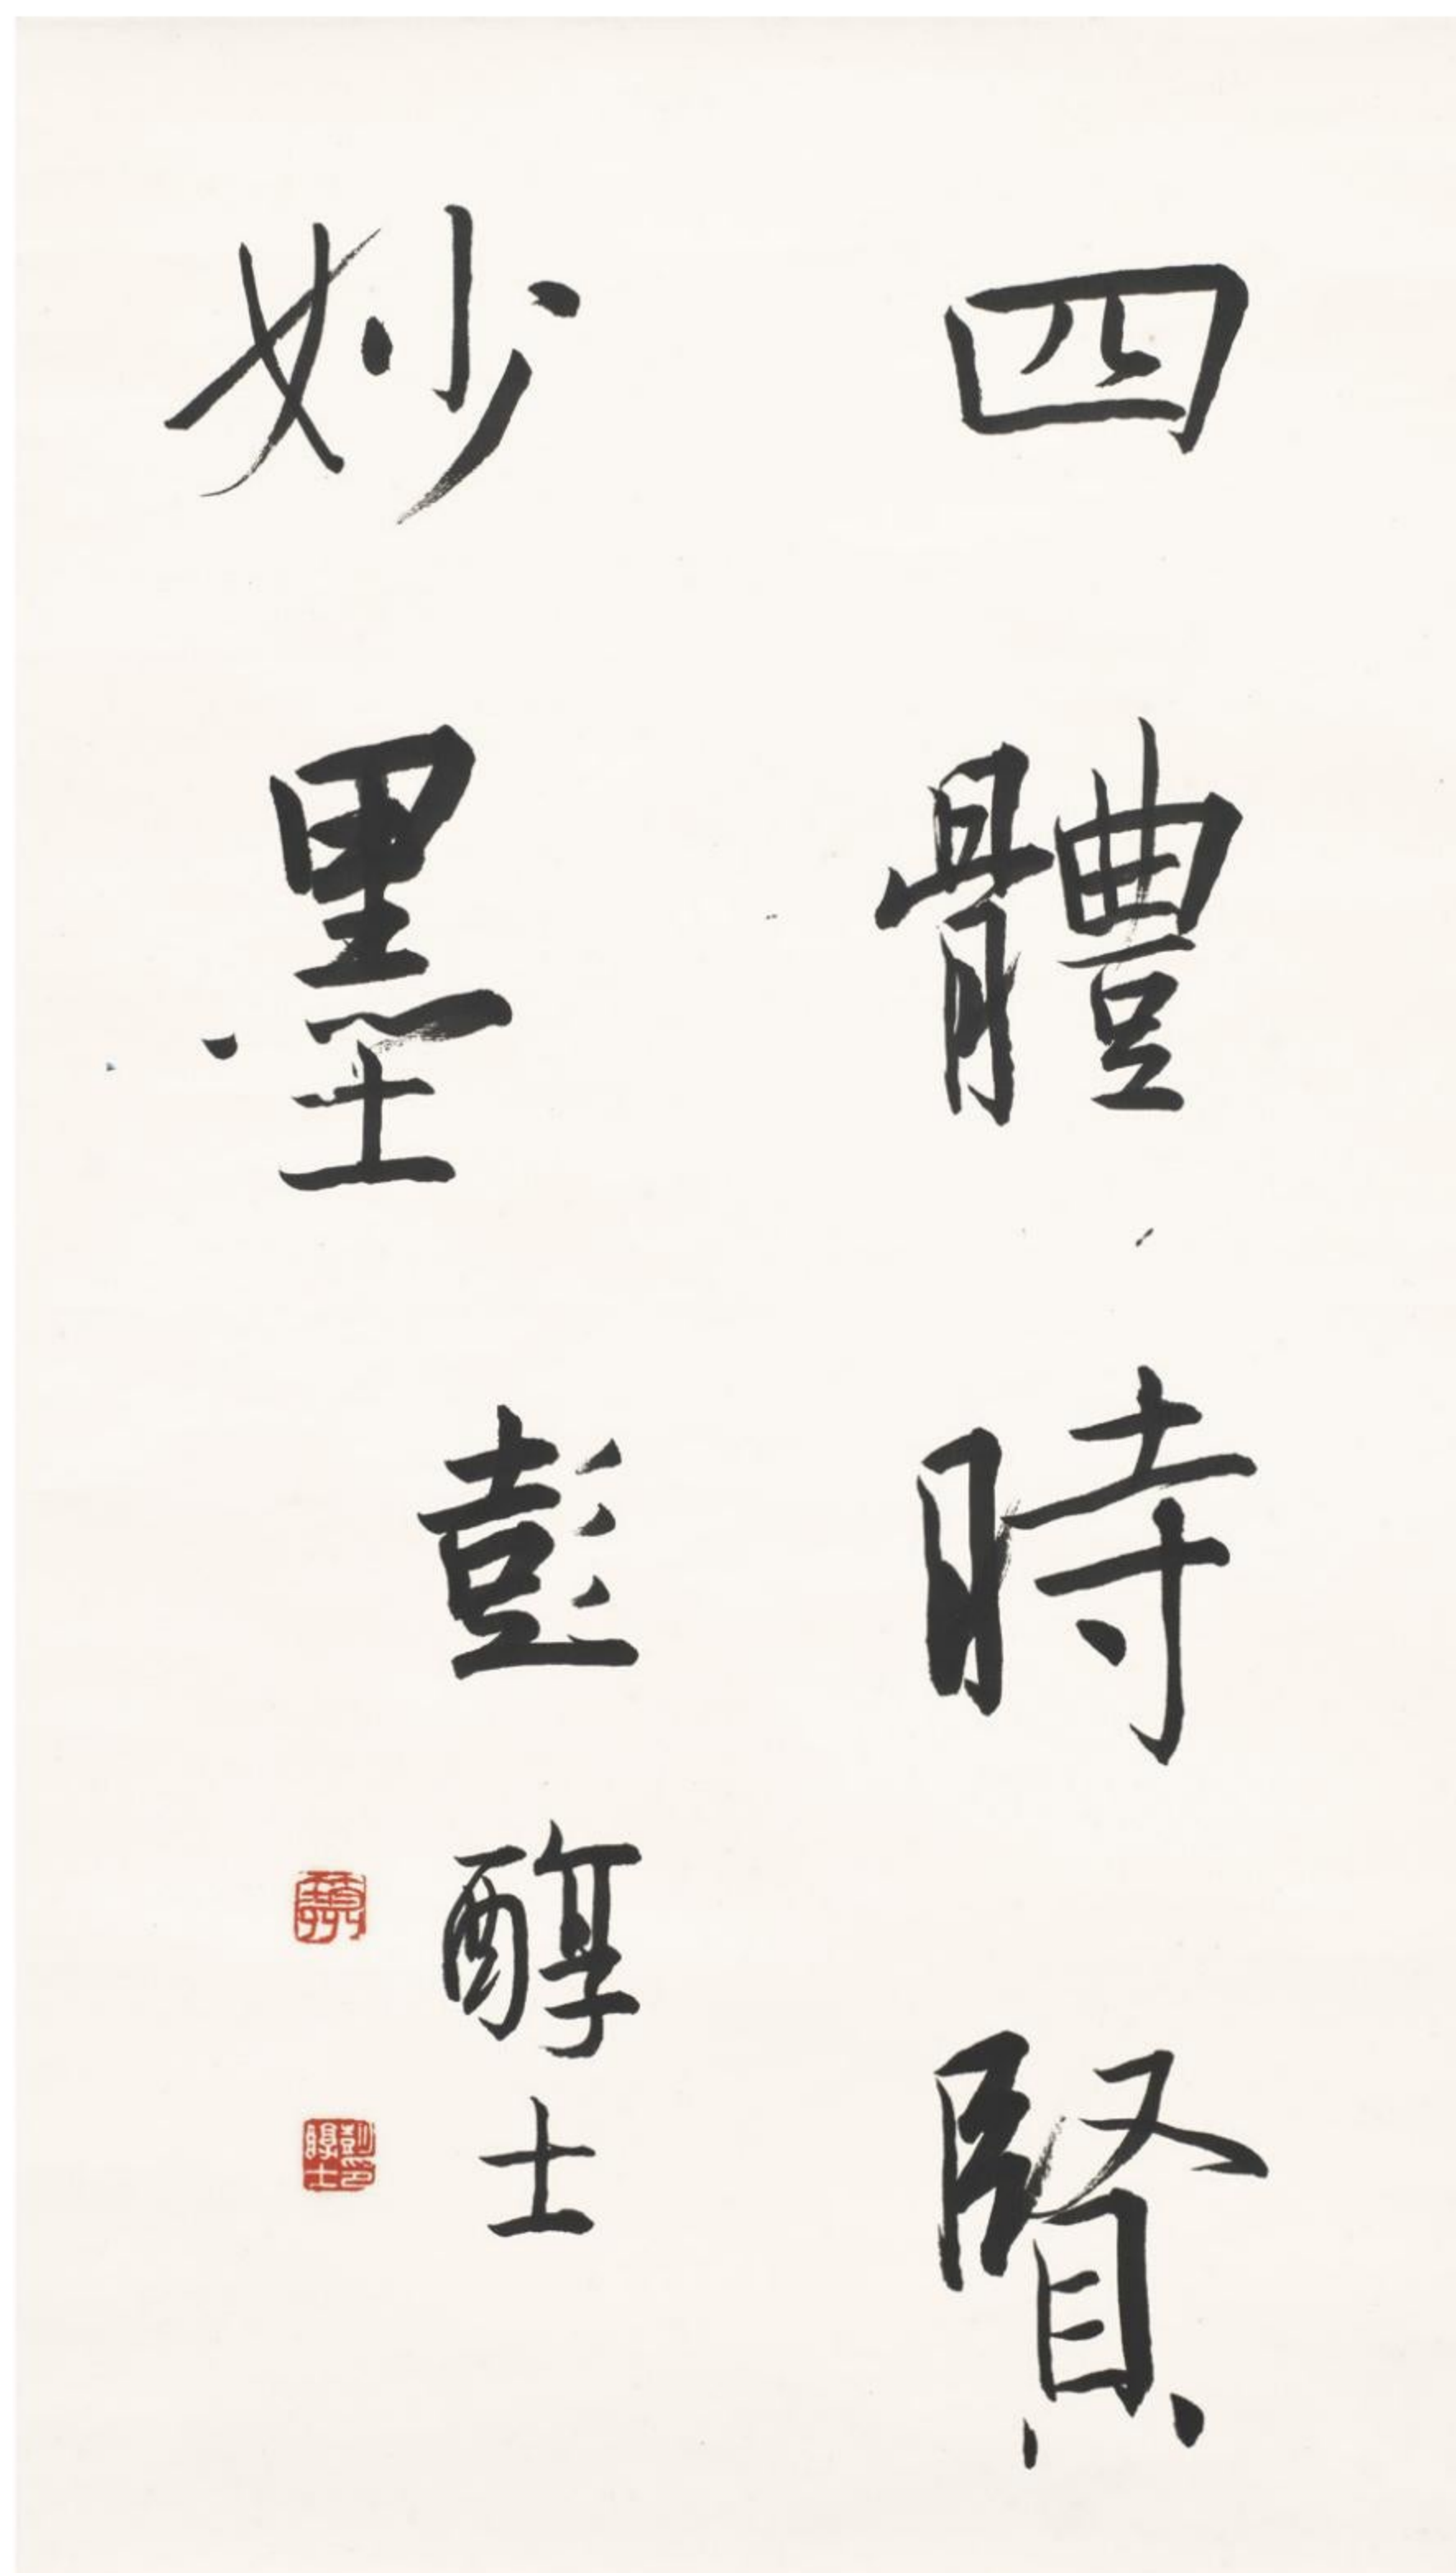 四體時賢
妙墨
彭醇士